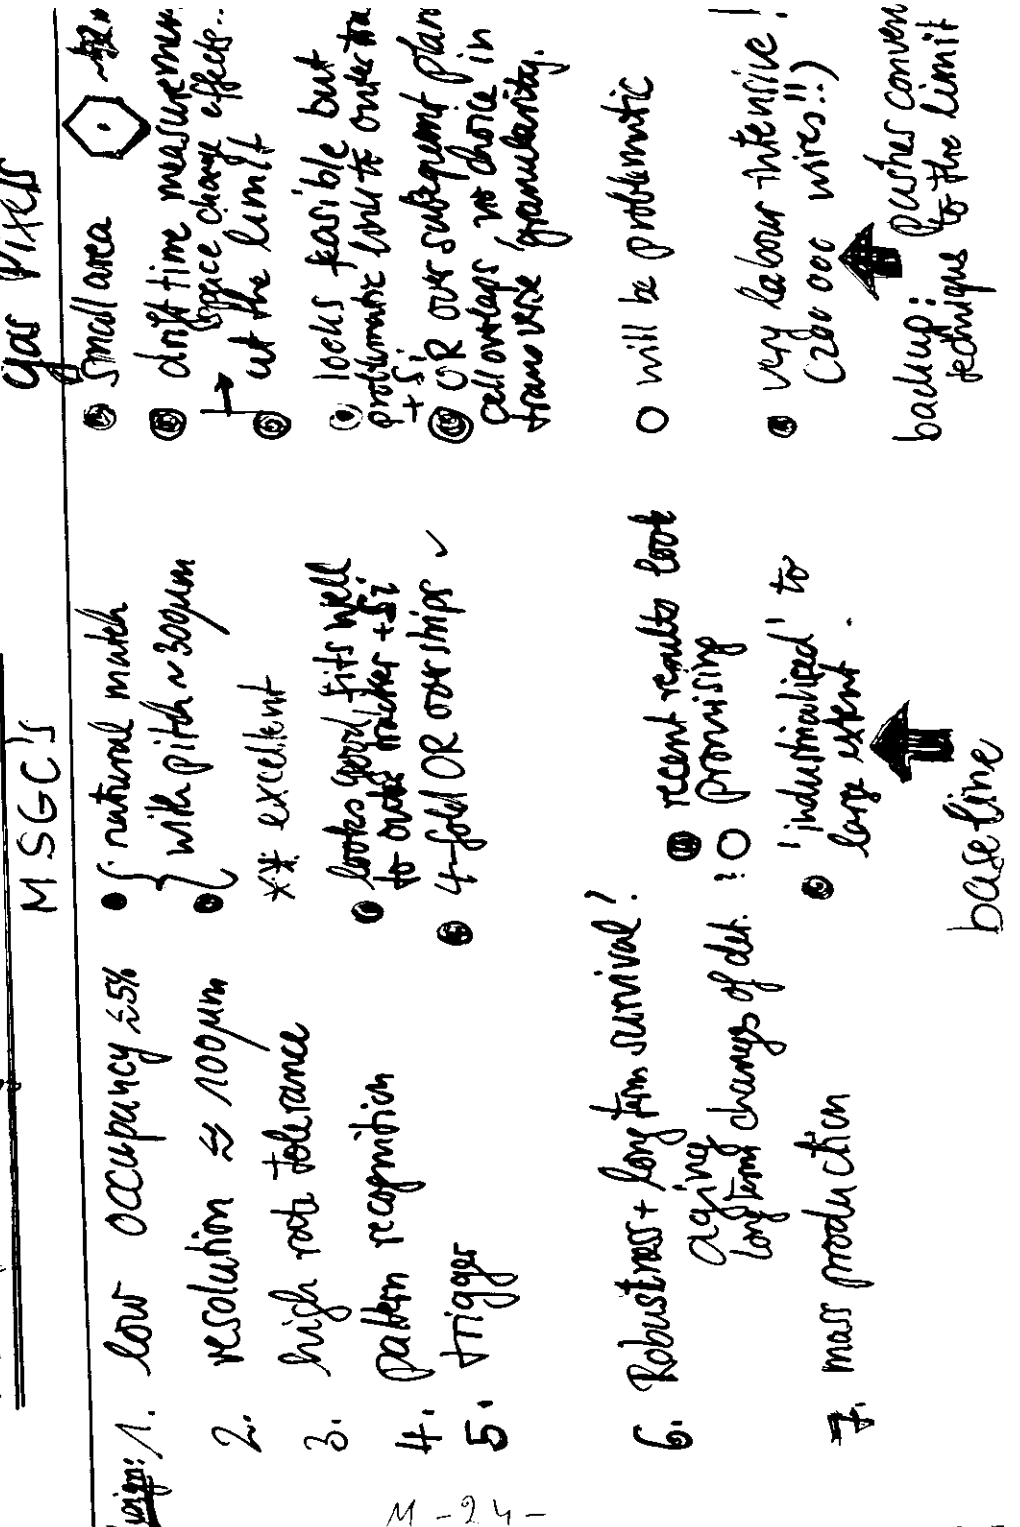 MSGC's
gas Pixels
1. low occupancy ≲5%
natural match
small area
2. resolution ≲ 100µm
with pitch ~ 300µm
drift time measuremen
space charge effects..
3. high rate tolerance
** excellent
at the limit
4. pattern recognition
looks good, fits well
to outer tracker + Si
looks feasible but
problematic
+ Si
5. trigger
4-fold OR over strips ✓
OR over subsequent plan
cell overlaps no choice in
transverse granularity.
6. Robustness + long term survival?
aging
long term changes of det.
recent results look
! O promising
O will be problematic
7. mass production
'industrialized' to
large extent.
very labour intensive!
(200 000 wires!!)
baseline
backup: pushes conven
technique to the limit
M - 24 -